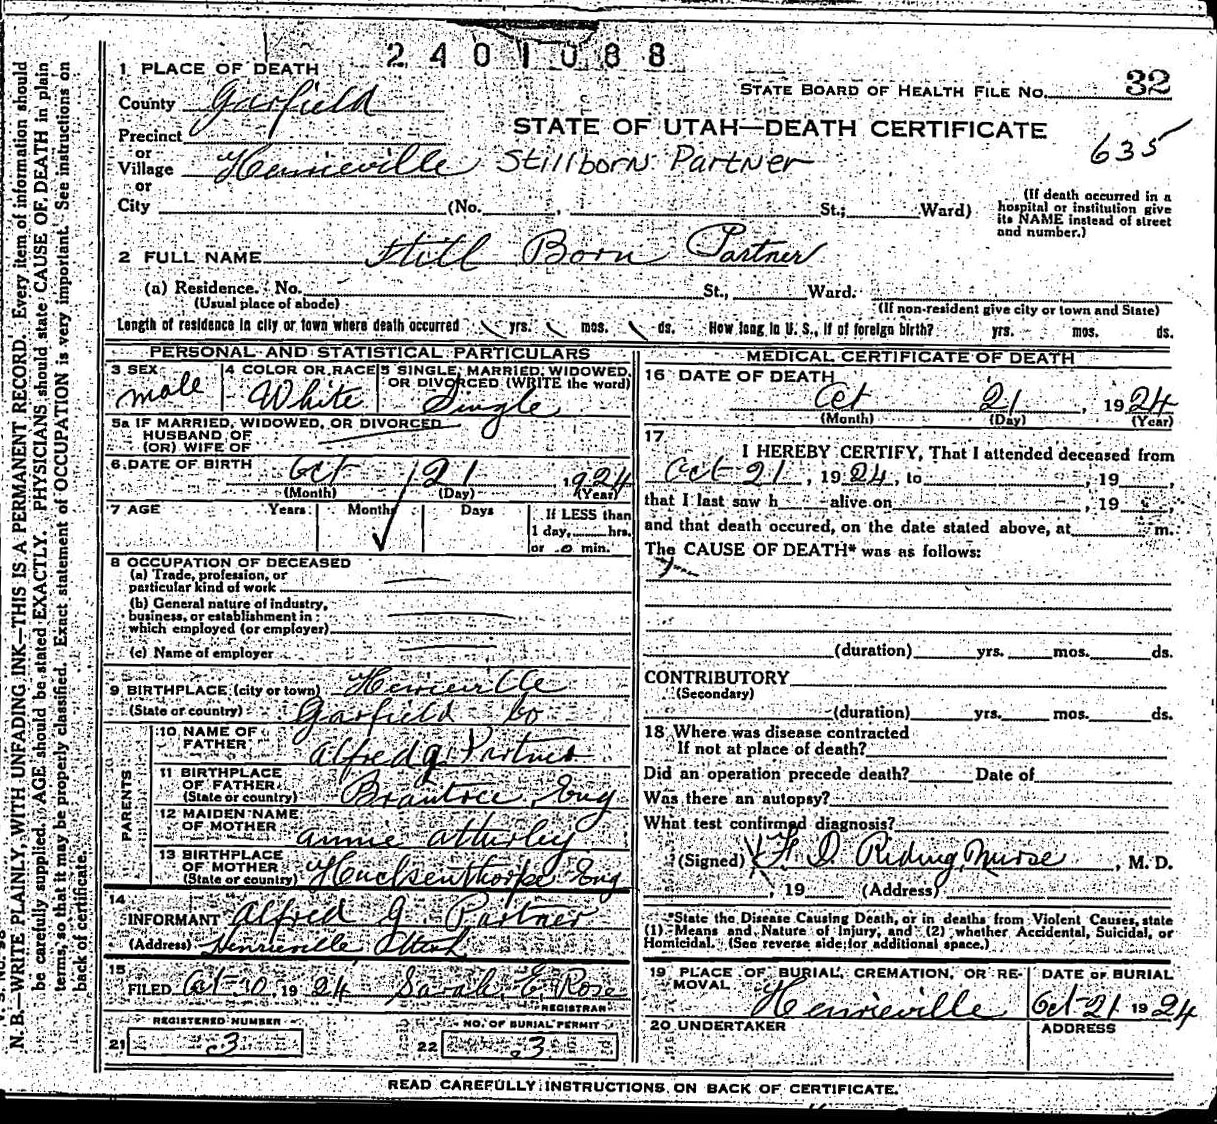 2401088
1 PLACE OF DEATH
STATE BOARD OF HEALTH FILE NO. 32
County Garfield
STATE OF UTAH—DEATH CERTIFICATE
635
Precinct
or
Village Henrieville Stillborn Partner
or
City (No. , St.; Ward)
(If death occurred in a
hospital or institution give
its NAME instead of street
and number.)
2 FULL NAME Still Born Partner
(a) Residence. No. St., Ward.
(Usual place of abode) (If non-resident give city or town and State)
Length of residence in city or town where death occurred yrs. mos. ds. How long in U. S., if of foreign birth? yrs. mos. ds.
PERSONAL AND STATISTICAL PARTICULARS
3 SEX 4 COLOR OR RACE 5 SINGLE, MARRIED, WIDOWED,
OR DIVORCED (WRITE the word)
male White Single
5a IF MARRIED, WIDOWED, OR DIVORCED
HUSBAND OF
(OR) WIFE OF
6 DATE OF BIRTH Oct 21 1924
(Month) (Day) (Year)
7 AGE Years Months Days If LESS than
1 day, hrs.
or 0 min.
8 OCCUPATION OF DECEASED
(a) Trade, profession, or
particular kind of work
(b) General nature of industry,
business, or establishment in
which employed (or employer)
(c) Name of employer
9 BIRTHPLACE (city or town) Henrieville
(State or country) Garfield Co
PARENTS
10 NAME OF
FATHER Alfred G. Partner
11 BIRTHPLACE
OF FATHER
(State or country) Braintree, Eng
12 MAIDEN NAME
OF MOTHER Annie Atterley
13 BIRTHPLACE
OF MOTHER
(State or country) Eng
14
INFORMANT Alfred G. Partner
(Address) Henrieville, Utah
15
FILED Oct 10, 1924 Sarah E. Rose
REGISTRAR
REGISTERED NUMBER NO. OF BURIAL PERMIT
21 3 22 3
MEDICAL CERTIFICATE OF DEATH
16 DATE OF DEATH
Oct 21, 1924
(Month) (Day) (Year)
17
I HEREBY CERTIFY, That I attended deceased from
Oct 21, 1924, to , 19 ,
that I last saw h alive on , 19 ,
and that death occured, on the date stated above, at m.
The CAUSE OF DEATH* was as follows:
(duration) yrs. mos. ds.
CONTRIBUTORY
(Secondary)
(duration) yrs. mos. ds.
18 Where was disease contracted
If not at place of death?
Did an operation precede death? Date of
Was there an autopsy?
What test confirmed diagnosis?
(Signed) D. Riding, Nurse, M. D.
, 19 (Address)
*State the Disease Causing Death, or in deaths from Violent Causes, state
(1) Means and Nature of Injury, and (2) whether Accidental, Suicidal, or
Homicidal. (See reverse side for additional space.)
19 PLACE OF BURIAL, CREMATION, OR RE-
MOVAL Henrieville
DATE OF BURIAL
Oct-21 1924
20 UNDERTAKER ADDRESS
READ CAREFULLY INSTRUCTIONS ON BACK OF CERTIFICATE.
N. B.—WRITE PLAINLY, WITH UNFADING INK—THIS IS A PERMANENT RECORD. Every item of information should
be carefully supplied. AGE should be stated EXACTLY. PHYSICIANS should state CAUSE OF DEATH in plain
terms, so that it may be properly classified. Exact statement of OCCUPATION is very important. See instructions on
back of certificate.